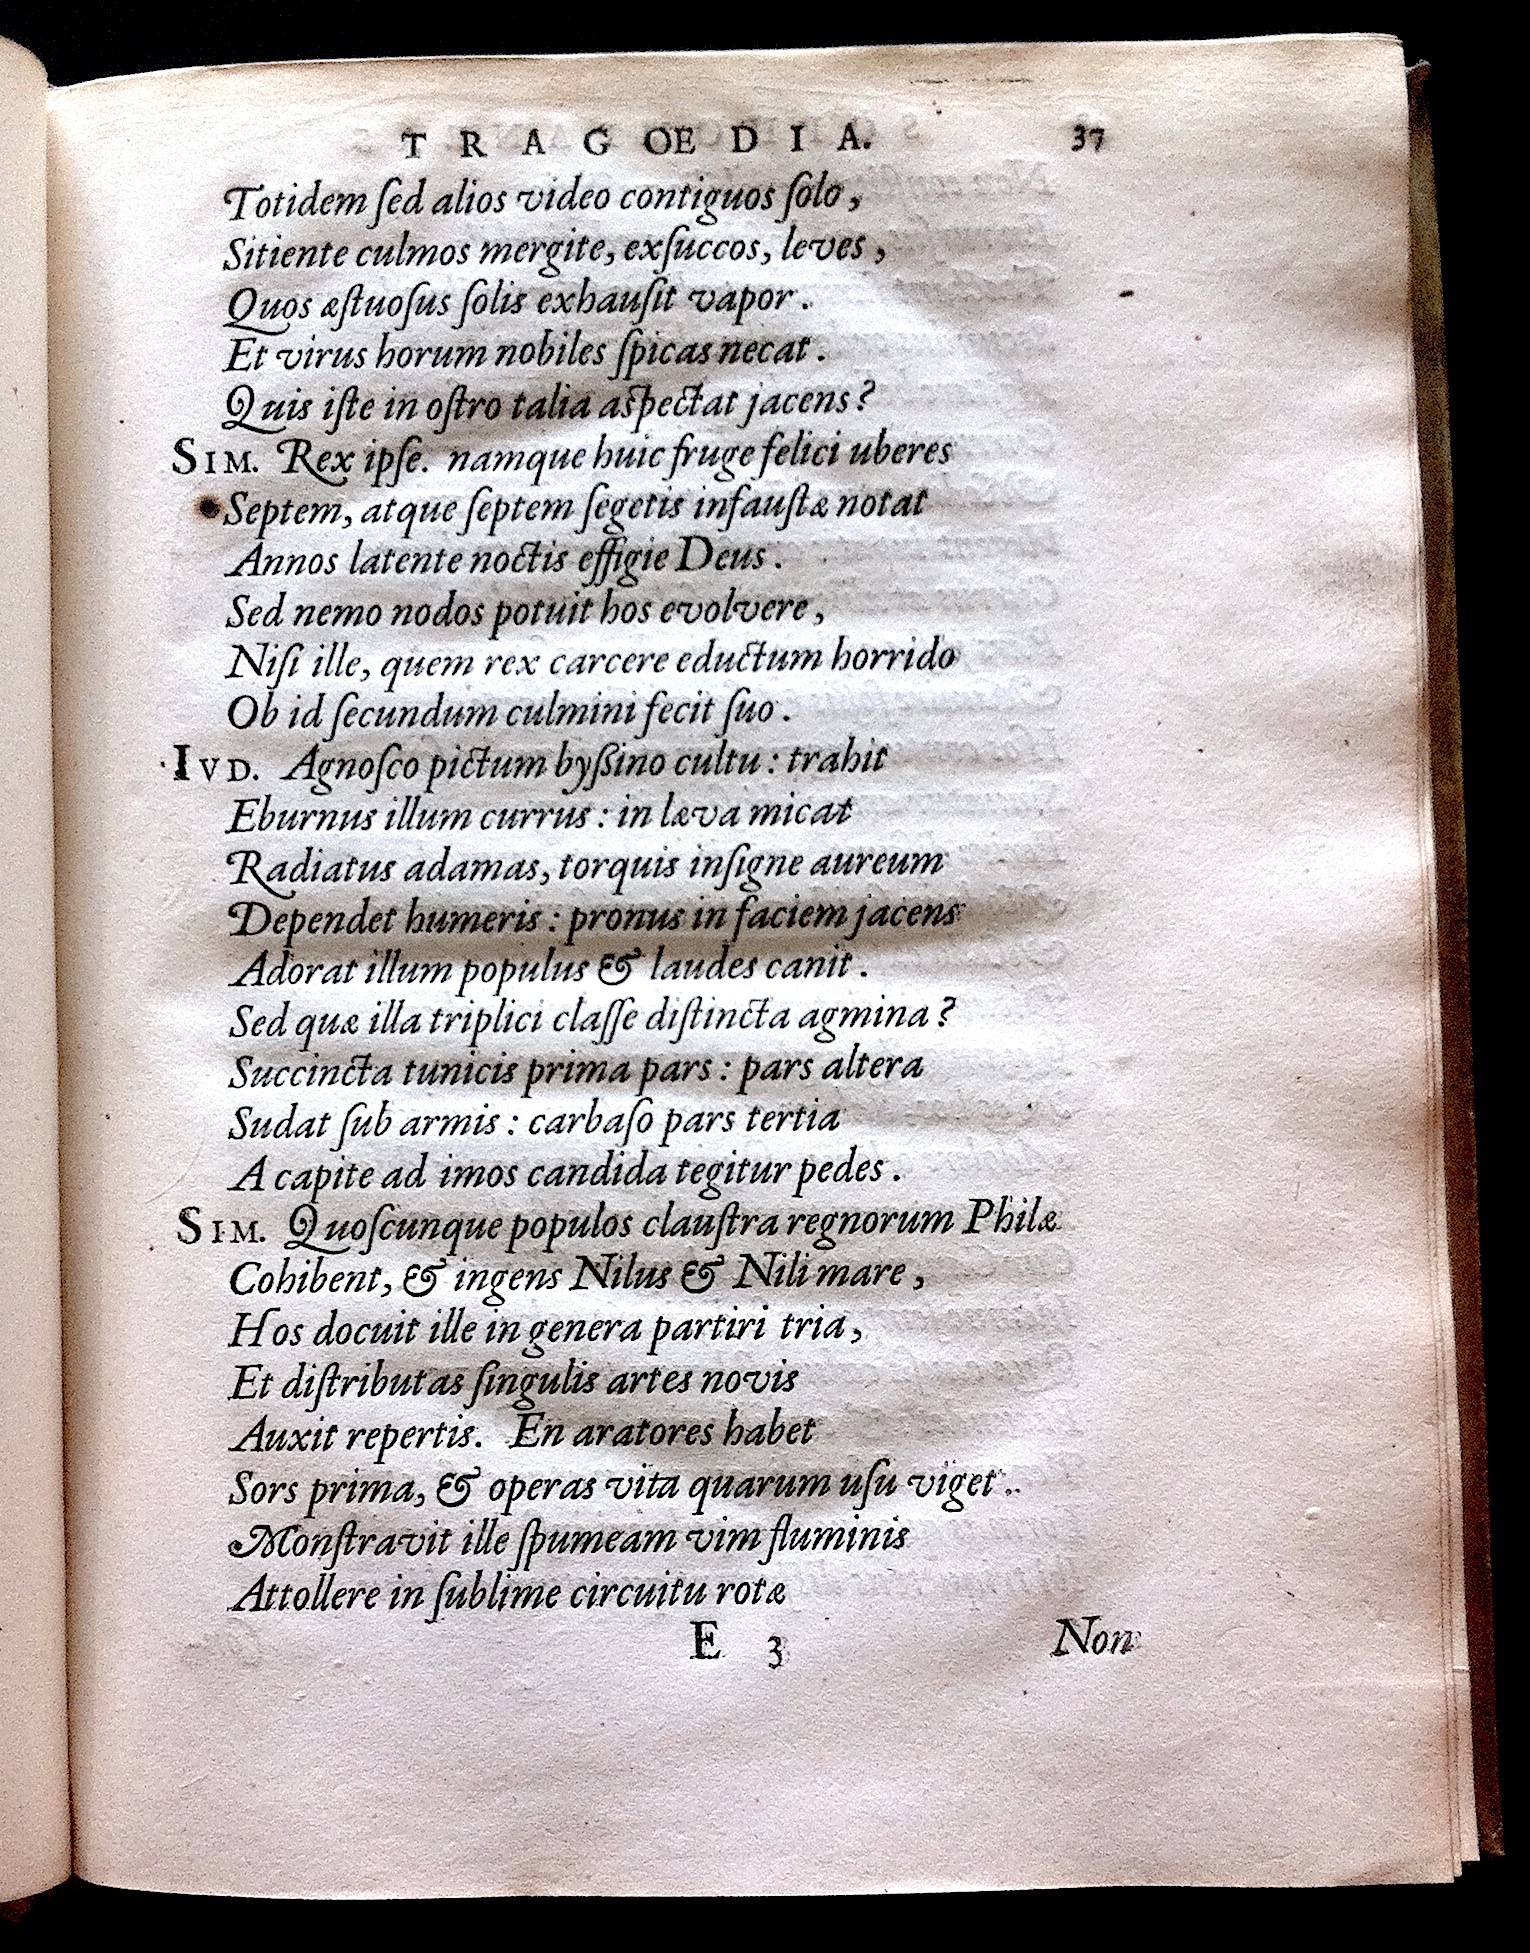 TRAGOEDIA. 37
Totidem ſed alios video contiguos ſolo,
Sitiente culmos mergite, exſuccos, leves,
Quos æſtuoſus ſolis exhauſit vapor.
Et virus horum nobiles ſpicas necat.
Quis iſte in oſtro talia aſpectat jacens?
SIM. Rex ipſe. namque huic fruge felici uberes
Septem, atque ſeptem ſegetis infauſtæ notat
Annos latente noctis effigie Deus.
Sed nemo nodos potuit hos evolvere,
Niſi ille, quem rex carcere eductum horrido
Ob id ſecundum culmini fecit ſuo.
IVD. Agnoſco pictum byßino cultu: trahit
Eburnus illum currus: in læva micat
Radiatus adamas, torquis inſigne aureum
Dependet humeris: pronus in faciem jacens
Adorat illum populus & laudes canit.
Sed quæ illa triplici claſſe diſtincta agmina?
Succincta tunicis prima pars: pars altera
Sudat ſub armis: carbaſo pars tertia
A capite ad imos candida tegitur pedes.
SIM. Quoſcunque populos clauſtra regnorum Philæ
Cohibent, & ingens Nilus & Nili mare,
Hos docuit ille in genera partiri tria,
Et diſtributas ſingulis artes novis
Auxit repertis. En aratores habet
Sors prima, & operas vita quarum uſu viget.
Monſtravit ille ſpumeam vim fluminis
Attollere in ſublime circuitu rotæ
E 3 Non